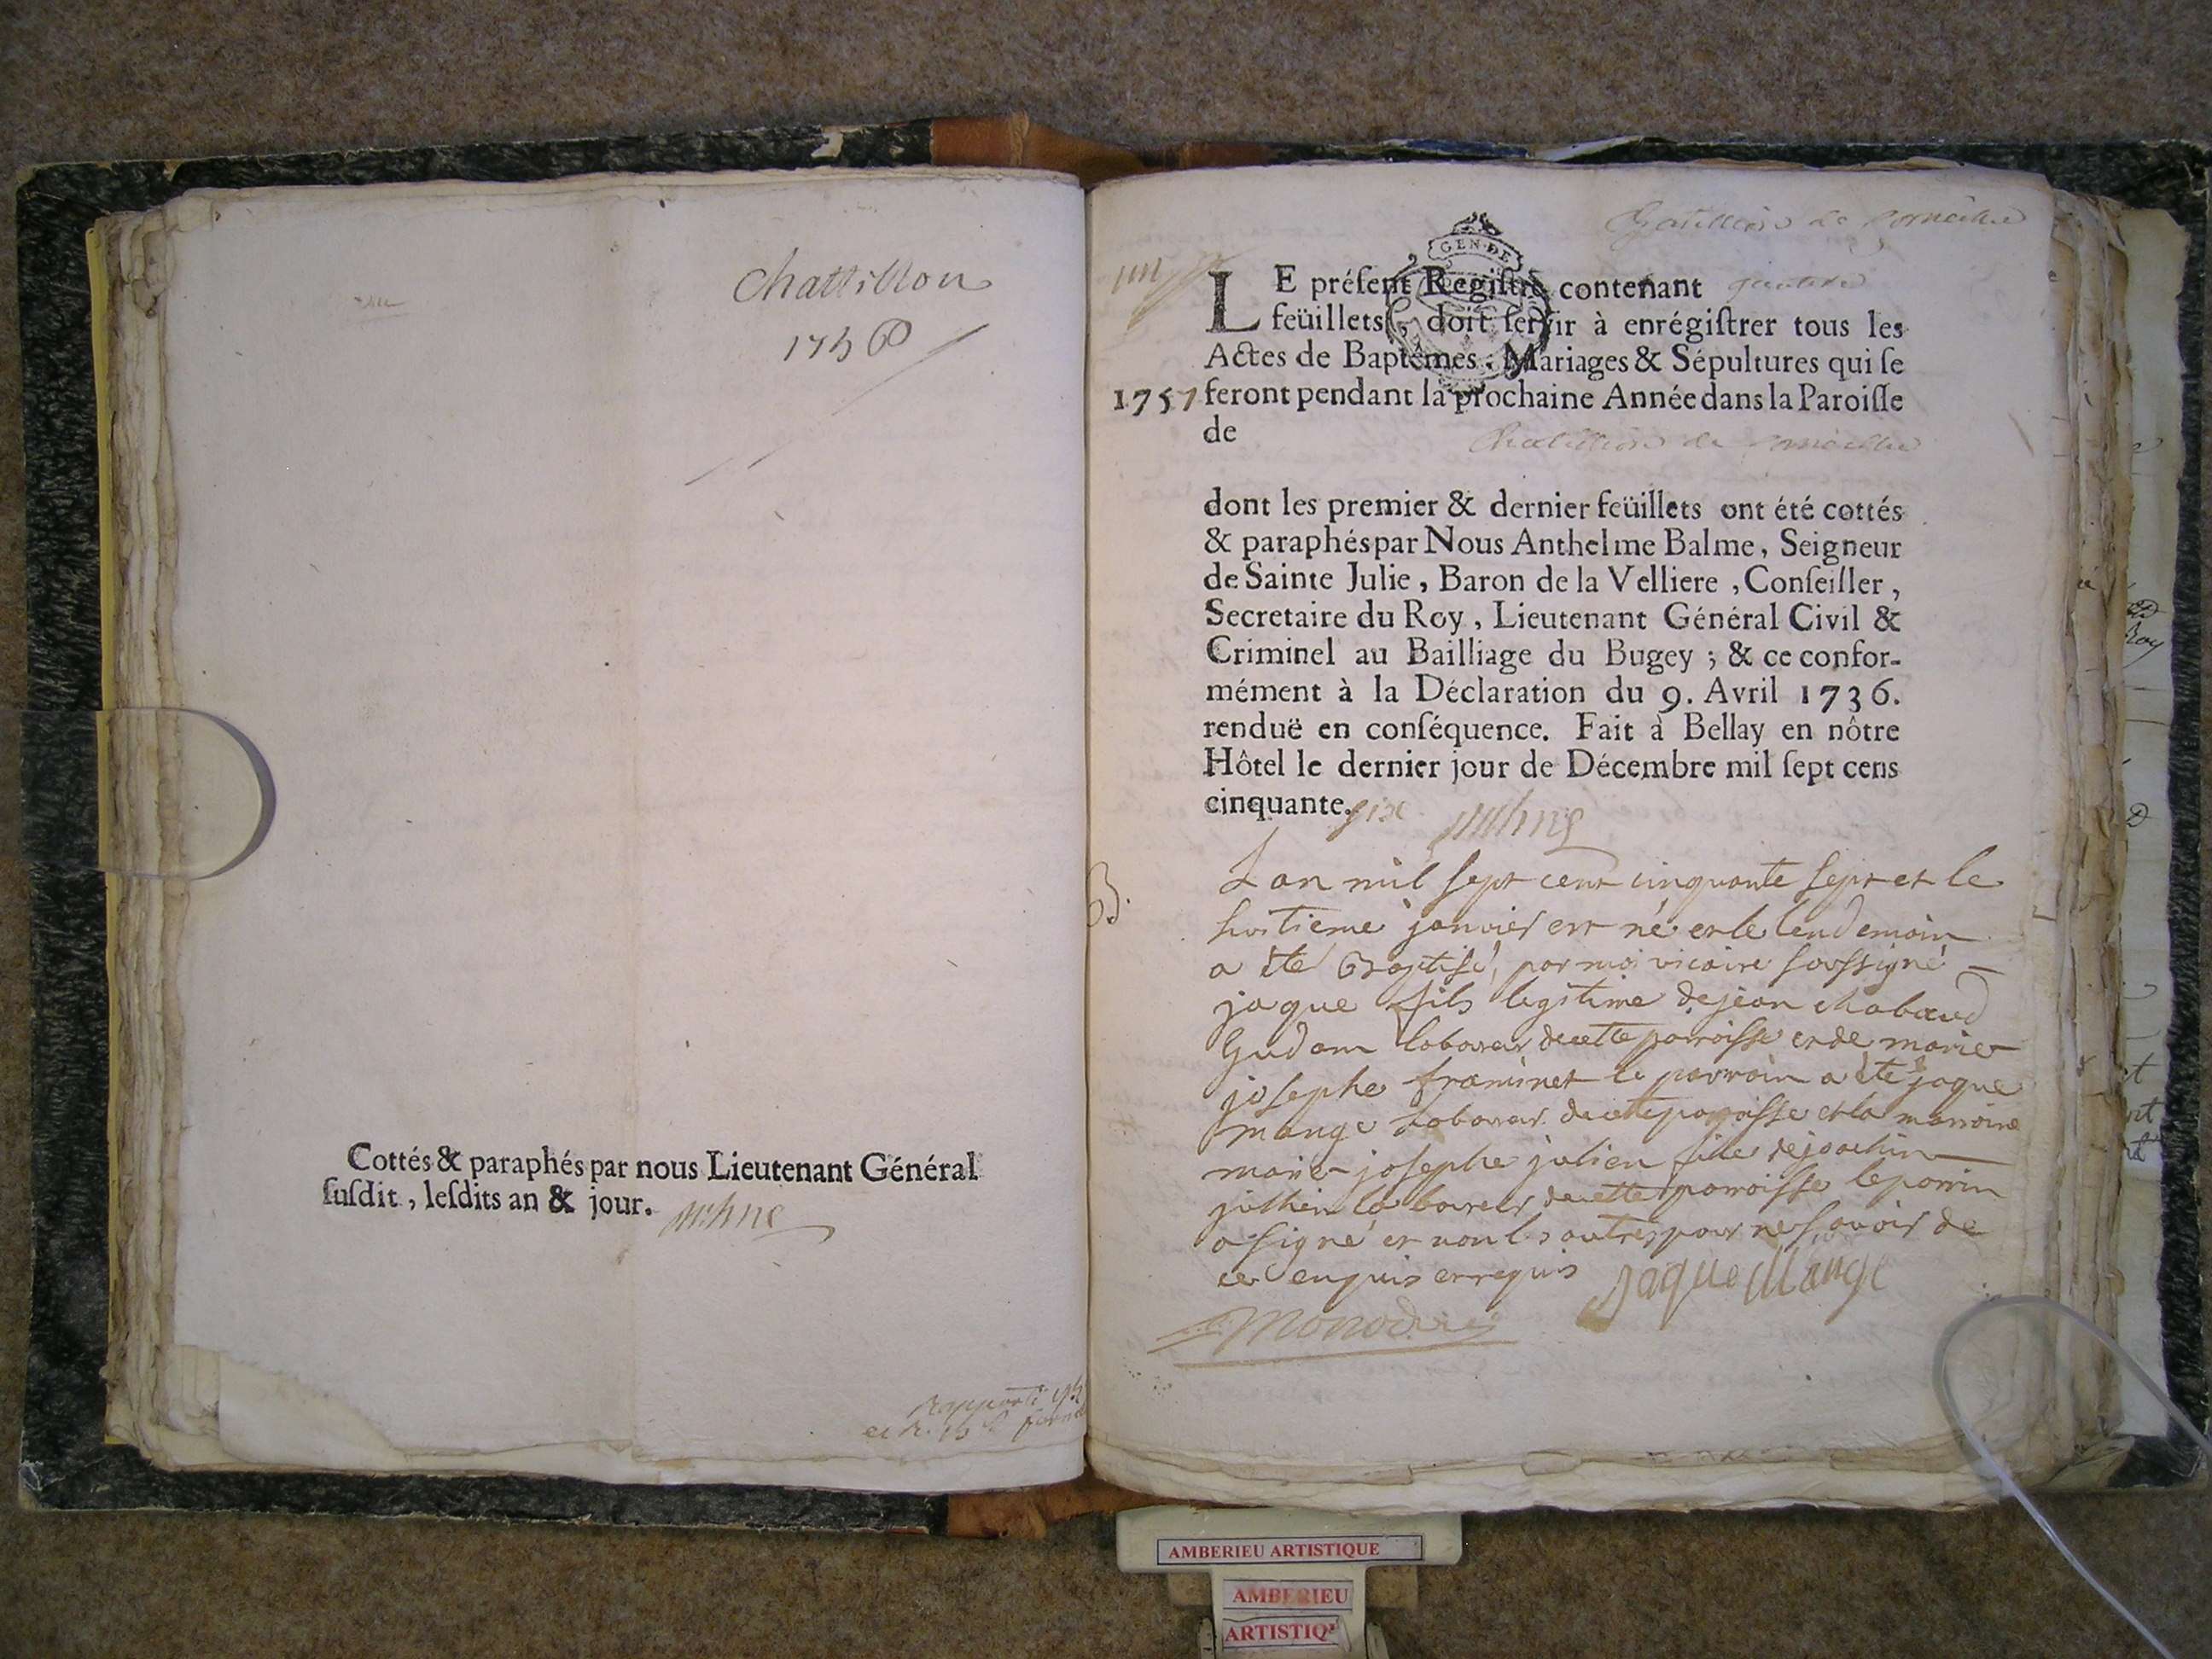 Chattillon
1756
Cottés & paraphés par nous Lieutenant Général
ſuſdit, leſdits an & jour.
Rapporté
GEN·DE
LE préſent Regiſtre contenant
feüillets, doit ſervir à enrégiſtrer tous les
Actes de Baptêmes, Mariages & Sépultures qui ſe
1757 feront pendant la prochaine Année dans la Paroiſſe
de Chatillion de
dont les premier & dernier feüillets ont été cottés
& paraphés par Nous Anthelme Balme, Seigneur
de Sainte Julie, Baron de la Velliere, Conſeiller,
Secretaire du Roy, Lieutenant Général Civil &
Criminel au Bailliage du Bugey; & ce confor-
mément à la Déclaration du 9. Avril 1736.
renduë en conſéquence. Fait à Bellay en nôtre
Hôtel le dernier jour de Décembre mil ſept cens
cinquante. six
B.
L an mil sept cent cinquante sept et le
huitieme janvier est né et le lendemain
a été Baptisé, par moi vicaire soussigné
jaque fils legitime de jean chabaud
Gudam laboureur de cette parroisse et de marie
josephe framinet le parroin a été jaque
mange laboureur de cette parroisse et la marroine
marie josephe julien fille de joachim
julhien laboureur de cette parroisse le parrin
a signé et non les autres pour ne savoir de
ce enquis et requis Jaque Mange
Monod
AMBERIEU ARTISTIQUE
AMBERIEU
ARTISTIQ